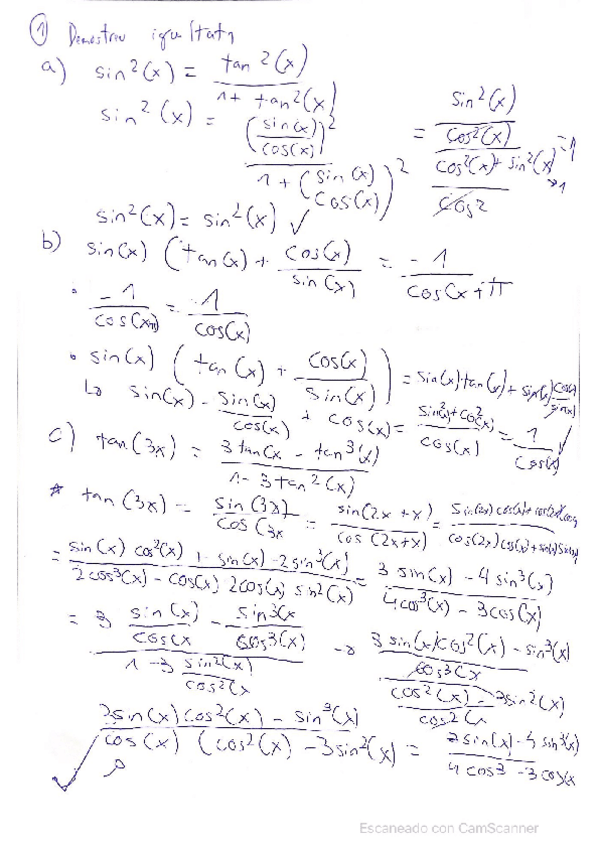 ① Demostreu igualtats
a) sin²(x) = tan²(x) / 1 + tan²(x)
sin²(x) = (sin(x)/cos(x))² / 1 + (sin(x)/cos(x))² = sin²(x)/cos²(x) / cos²(x) + sin²(x) → 1 / cos²
sin²(x) = sin²(x) ✓
b) sin(x) (tan(x) + cos(x)/sin(x)) = -1 / cos(x + π
• -1/cos(xπ) = 1/cos(x)
• sin(x) (tan(x) + cos(x)/sin(x)) = sin(x)·tan(x) + sin(x) cos(x)/sin(x)
↳ sin(x) - sin(x)/cos(x) + cos(x) = sin²(x) + cos²(x) / cos(x) = 1/cos(x) ✓
c) tan(3x) = 3tan(x - tan³(x) / 1 - 3tan²(x)
* tan(3x) = sin(3x) / cos(3x = sin(2x + x) / cos(2x+x) = sin(2x) cos(x) + cos(2x) / cos(2x) cos(x)
= sin(x) cos²(x) + sin(x) - 2sin³(x) / 2cos³(x) - cos(x) 2cos(x) sin²(x) = 3 sin(x) - 4 sin³(x) / 4cos³(x) - 3cos(x)
= 3 sin(x)/cos(x - sin³(x/cos³(x) / 1 - 3 sin²(x)/cos²(x → 3 sin(x)cos²(x) - sin³(x) / cos³(x / cos²(x) - 3sin²(x) / cos²(x
3sin(x) cos²(x) - sin³(x) / cos(x) (cos²(x) - 3sin²(x) = 3sin(x) - 4 sin³(x) / 4 cos³ - 3cos(x
✓
Escaneado con CamScanner